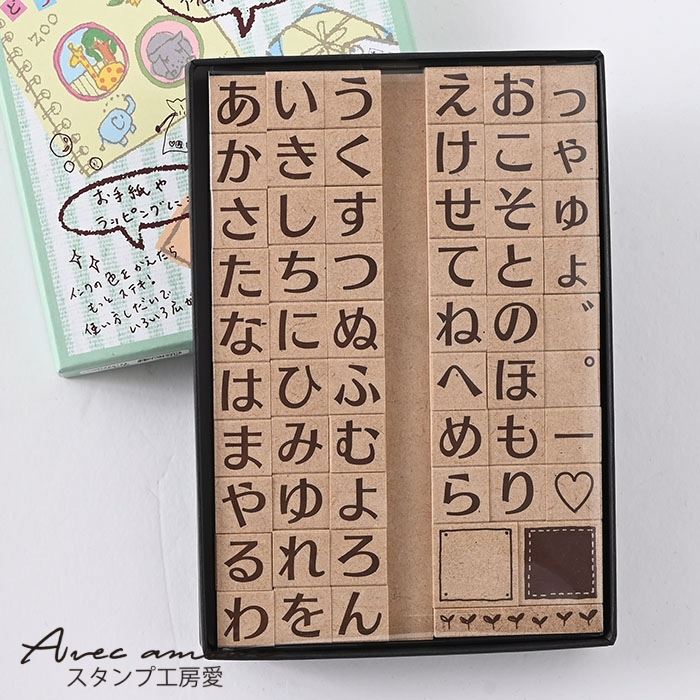 ZOO
お手紙や
インクの色をかえたら
もっとステキ!
使い方しだいで
あいう
かきく
さしす
たちつ
なにぬ
はひふ
まみむ
やゆよ
るれろ
わをん
えおっ
けこゃ
せそゅ
てとょ
ねの゛
へほ゜
めもー
らり♡
Avec ami
スタンプ工房愛